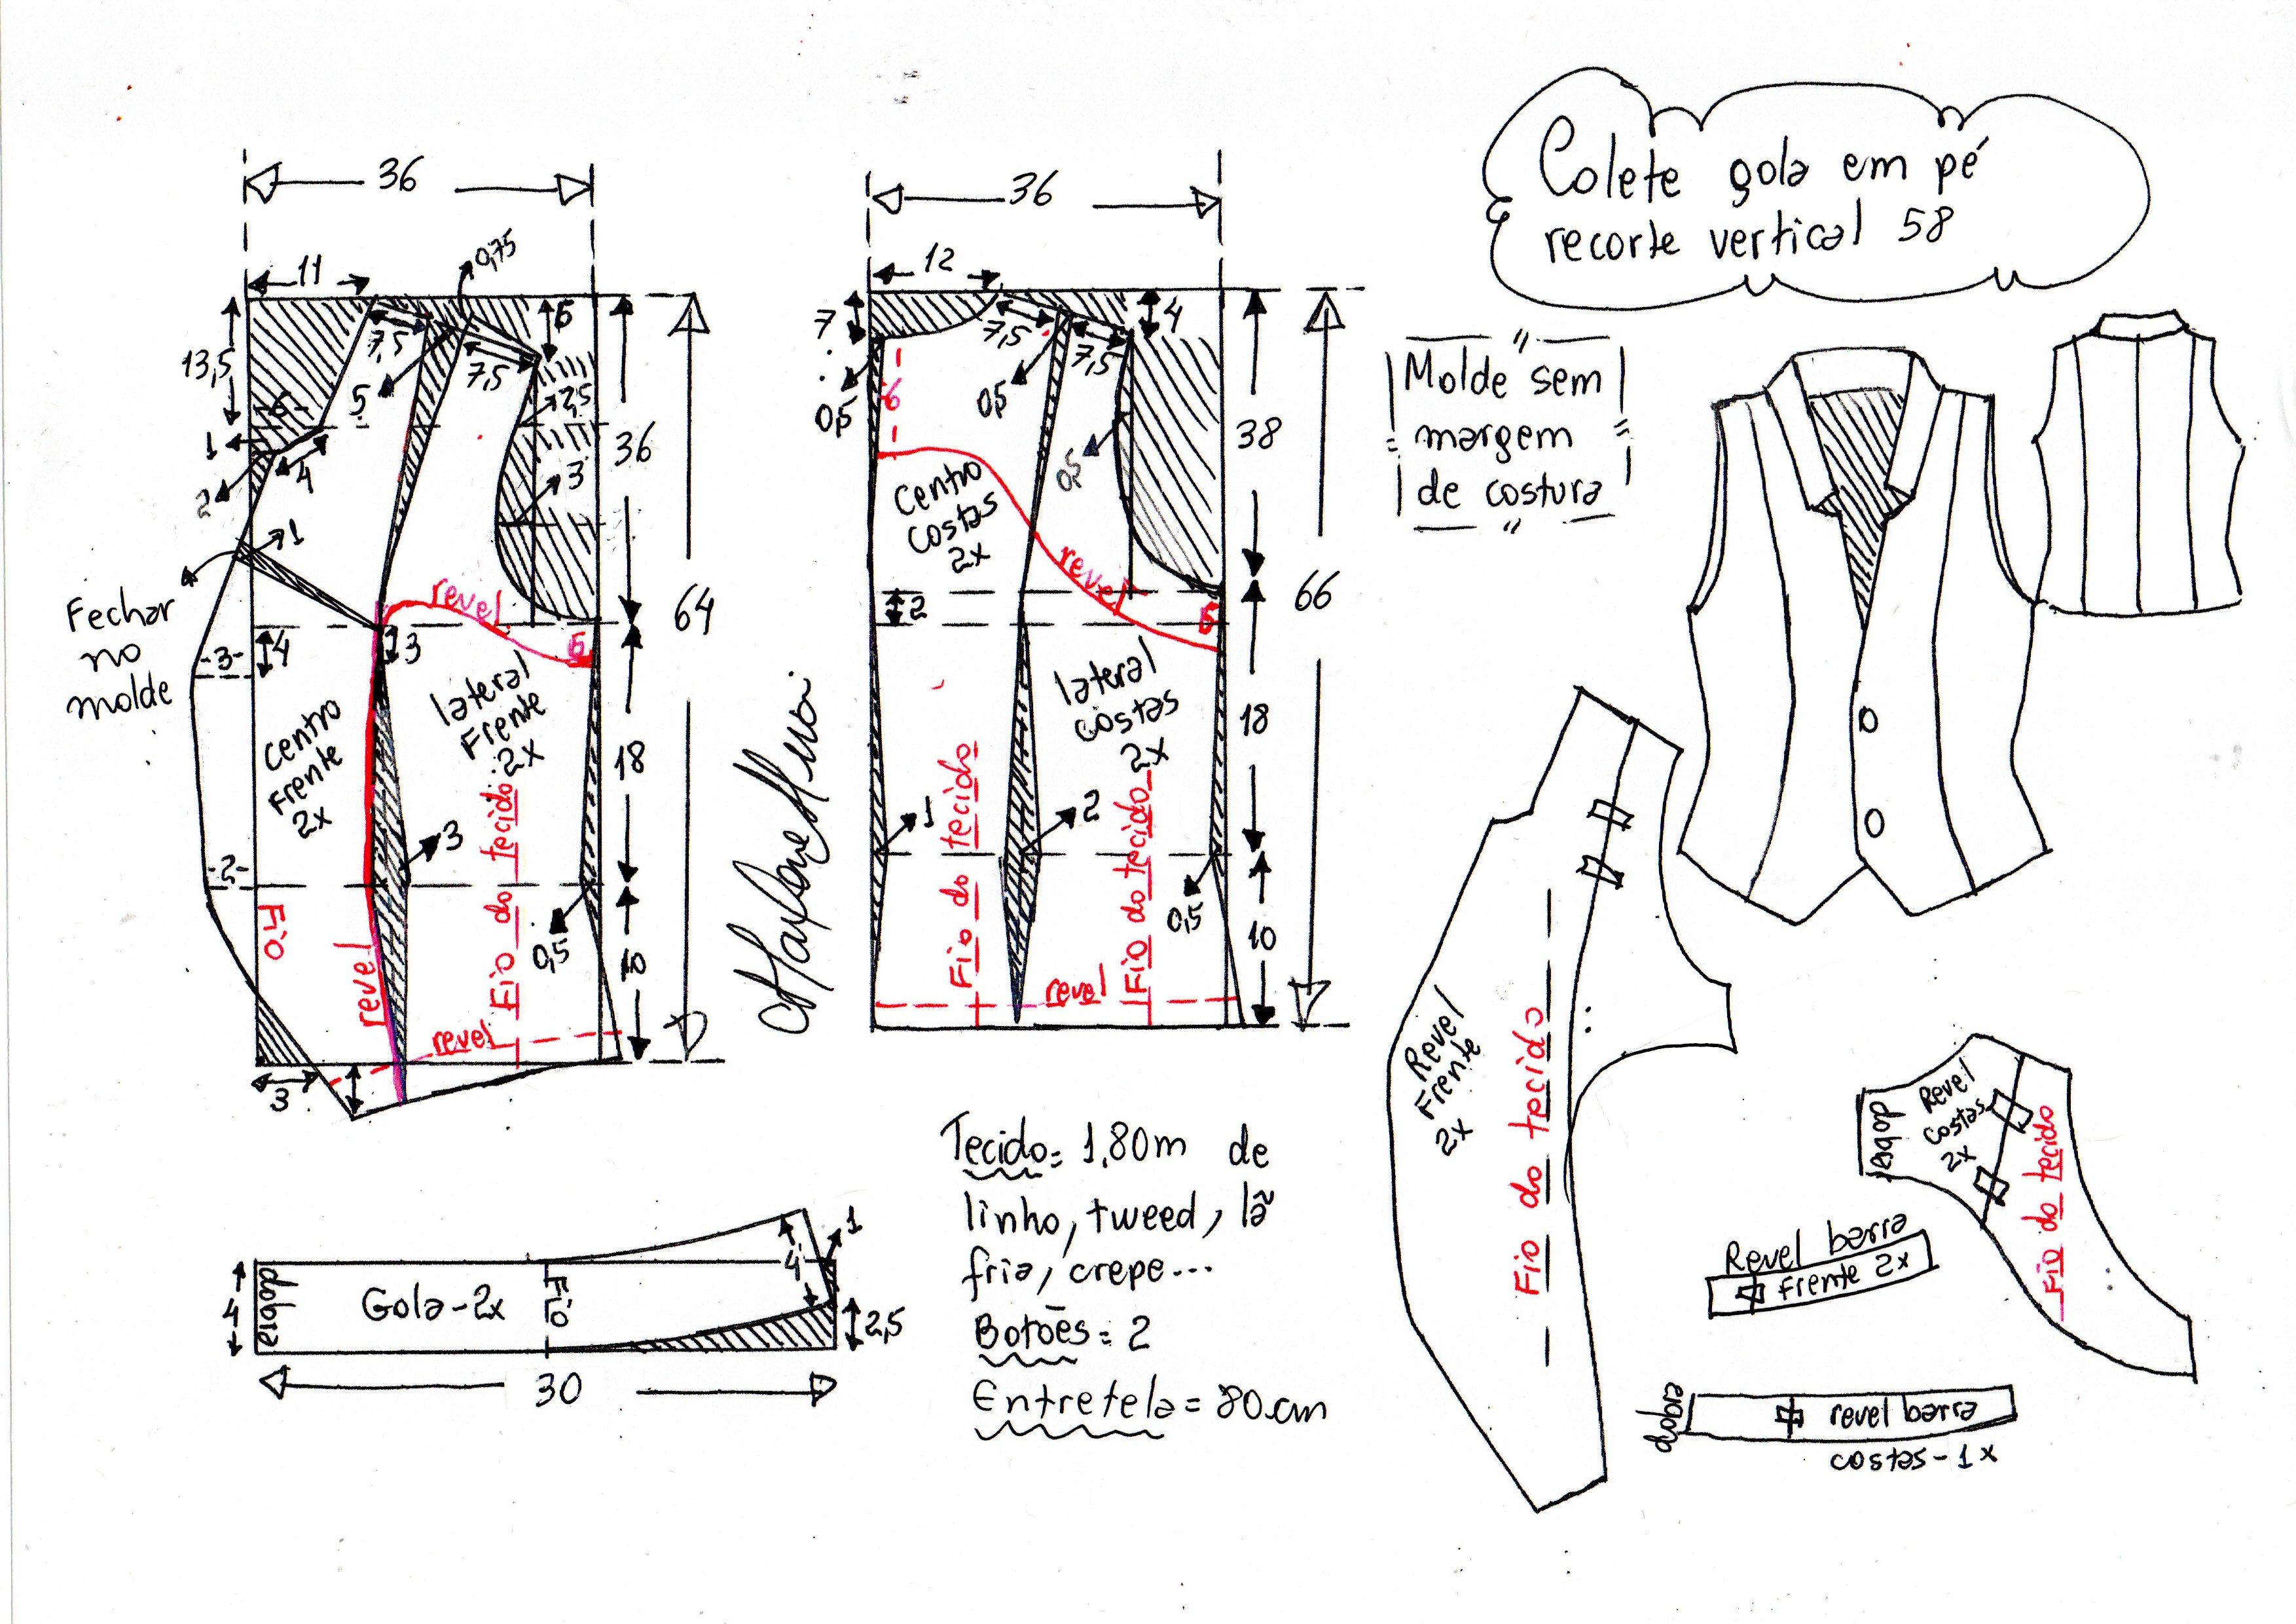 Colete gola em pé
recorte vertical 58
Molde sem
margem
de costura
36
11
0,75
13,5
7,5
5
7,5
5
2,5
6
1
4
2
3
36
64
1
Fechar
no
molde
revel
5
-3-
4
3
centro
Frente
2x
lateral
Frente
2x
18
3
-2-
Fio
revel
Fio do tecido
0,5
10
revel
3
36
12
7
7,5
7,5
4
0,5
6
0,5
0,5
38
66
centro
costas
2x
revel
5
2
lateral
costas
2x
18
1
2
Fio do tecido
Fio do tecido
0,5
10
revel
4
dobra
Gola-2x
Fio
4
1
2,5
30
Tecido= 1,80m de
linho, tweed, lã
fria, crepe...
Botões= 2
Entretela= 80cm
Revel
Frente
2x
Fio do tecido
dobra
Revel
costas
2x
Fio do tecido
Revel barra
frente 2x
dobra
revel barra
costas-1x